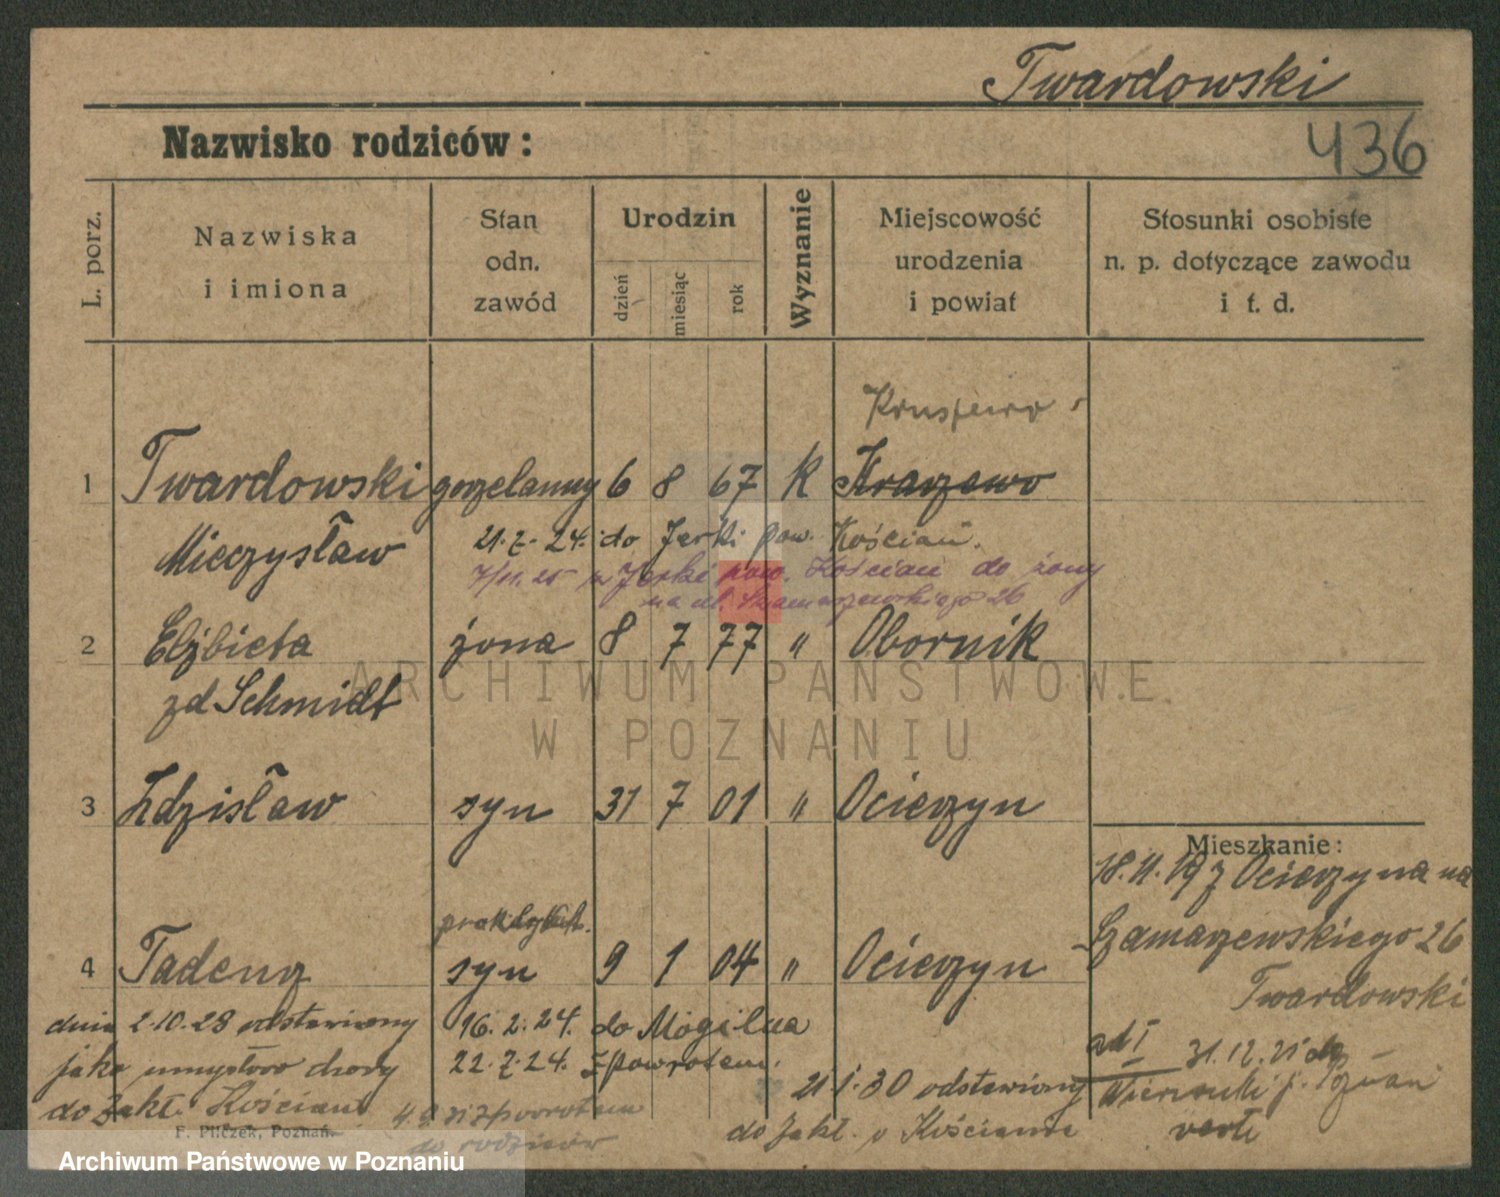 Twardowski
Nazwisko rodziców:
436
L. porz.
Nazwiska
i imiona
Stan
odn.
zawód
Urodzin
dzień
miesiąc
rok
Wyznanie
Miejscowość
urodzenia
i powiat
Stosunki osobiste
n. p. dotyczące zawodu
i t. d.
Kruszewo
1 Twardowski gorzelanny 6 8 67 K Kraszewo
Mieczysław 21.7.24. do Jerki pow. Kościan.
z Jerki pow. Kościan do żony
na ul. Szamarzewskiego 26
2 Elżbieta żona 8 7 77 " Obornik
zd Schmidt
ARCHIWUM PAŃSTWOWE
W POZNANIU
3 Zdzisław syn 31 7 01 " Ocieszyn
Mieszkanie:
18.11.19 z Ocieszyna na
Szamarzewskiego 26
Twardowski
praktykant.
4 Tadeusz syn 9 1 04 " Ocieszyn
dnia 2.10.28 odstawiony 16.2.24. do Mogilna
jako umysłowo chory 22.7.24. z powrotem.
do Zakł. Kościan
z powrotem
do rodziców
21 1.30 odstawiony
do Zakł. w Kościanie
ad I 31.12.25
verte
F. Pilczek, Poznań.
Archiwum Państwowe w Poznaniu